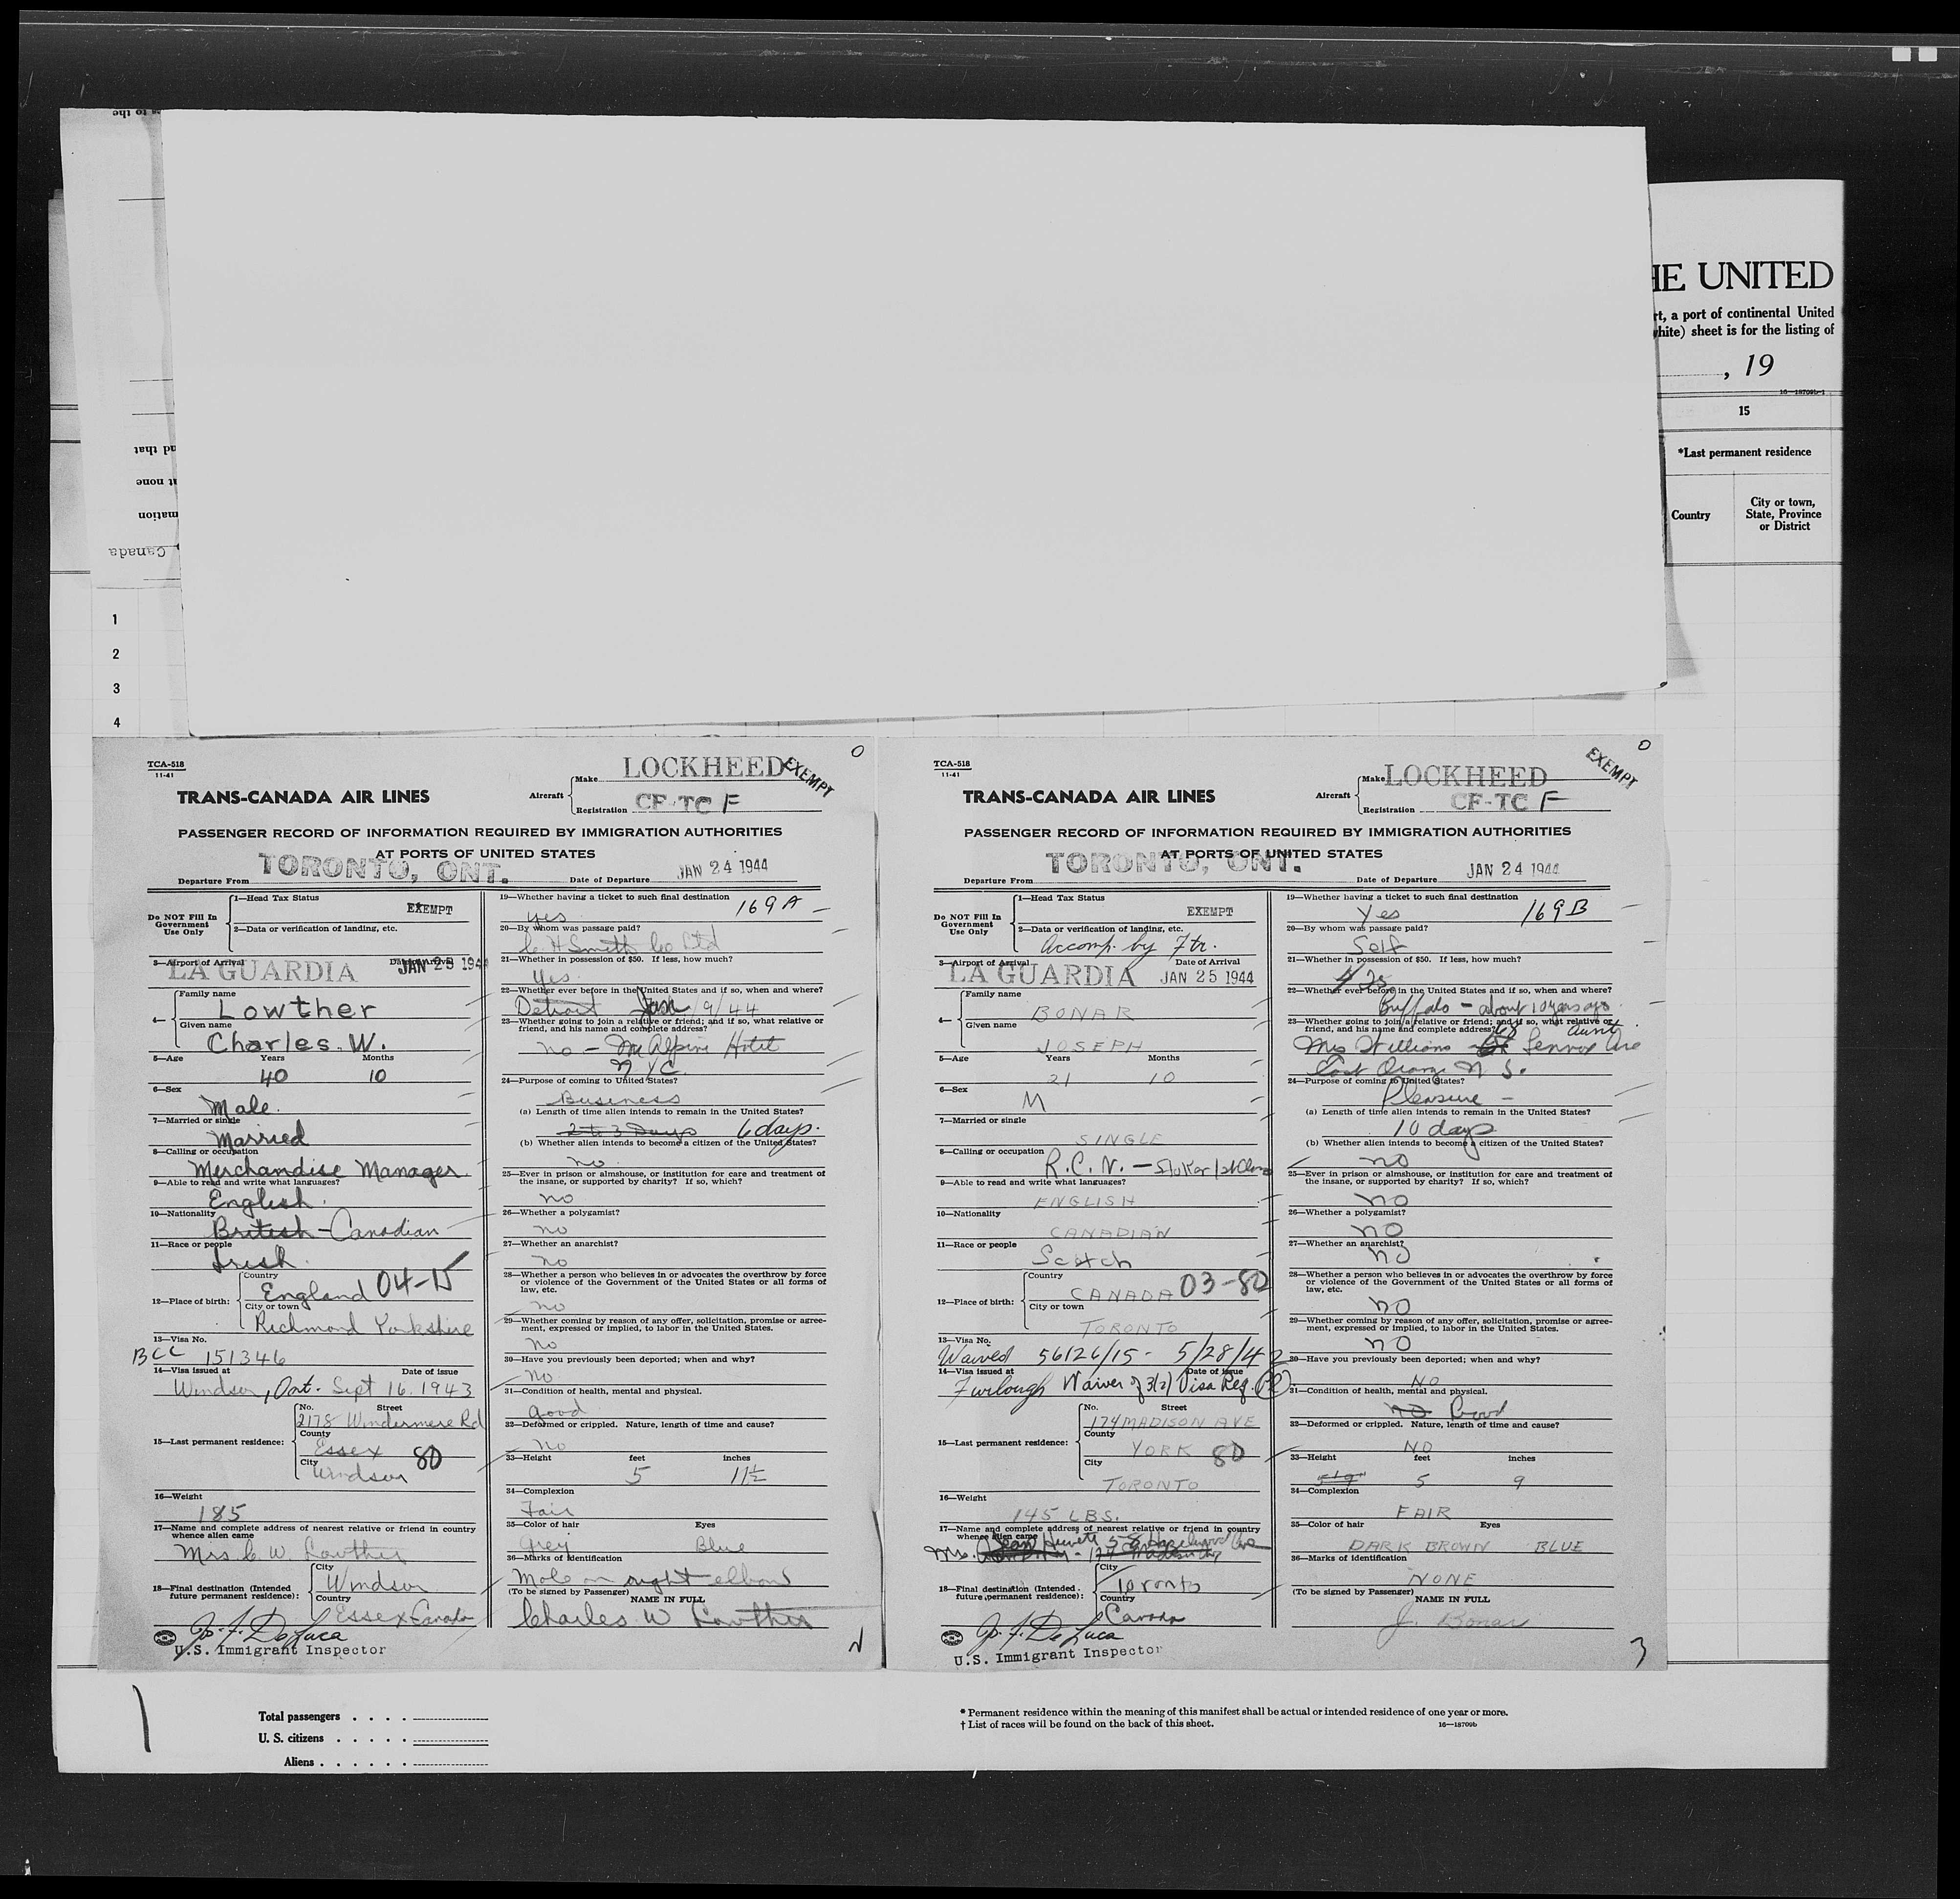 es to the
HE UNITED
rt, a port of continental United
white) sheet is for the listing of
, 19
16—18709b-1
15
nd that
at none
mation
Canada
*Last permanent residence
Country
City or town,
State, Province
or District
1
2
3
4
TCA-518
11-41
TRANS-CANADA AIR LINES
Aircraft
Make LOCKHEED
EXEMPT
O
Registration CF-TC F
PASSENGER RECORD OF INFORMATION REQUIRED BY IMMIGRATION AUTHORITIES
AT PORTS OF UNITED STATES
Departure From TORONTO, ONT.
Date of Departure JAN 24 1944
Do NOT Fill In
Government
Use Only
1—Head Tax Status
EXEMPT
2—Data or verification of landing, etc.
3—Airport of Arrival
Date of Arrival
LA GUARDIA
JAN 25 1944
4—
Family name
Lowther
Given name
Charles. W.
5—Age Years Months
40 10
6—Sex
Male.
7—Married or single
Married
8—Calling or occupation
Merchandise Manager
9—Able to read and write what languages?
English.
10—Nationality
British - Canadian
11—Race or people
Irish.
12—Place of birth:
Country
England 04-15
City or town
Richmond Yorkshire
13—Visa No.
BCC 151346
14—Visa issued at Date of issue
Windsor, Ont. Sept 16. 1943
15—Last permanent residence:
No. Street
2178 Windermere Rd
County
Essex 80
City
Windsor
16—Weight
185
17—Name and complete address of nearest relative or friend in country
whence alien came
Mrs C. W. Lowther
18—Final destination (Intended
future permanent residence):
City
Windsor
Country
Essex Canada
Jo. F. De Luca
U.S. Immigrant Inspector
19—Whether having a ticket to such final destination
yes 169A
20—By whom was passage paid?
C. H Smith Co Ltd
21—Whether in possession of $50. If less, how much?
Yes
22—Whether ever before in the United States and if so, when and where?
Detroit Jan 19/44
23—Whether going to join a relative or friend; and if so, what relative or
friend, and his name and complete address?
no - McAlpine Hotel
N.Y.C.
24—Purpose of coming to United States?
Business
(a) Length of time alien intends to remain in the United States?
2 to 3 Days 6 days.
(b) Whether alien intends to become a citizen of the United States?
no.
25—Ever in prison or almshouse, or institution for care and treatment of
the insane, or supported by charity? If so, which?
no
26—Whether a polygamist?
no
27—Whether an anarchist?
no
28—Whether a person who believes in or advocates the overthrow by force
or violence of the Government of the United States or all forms of
law, etc.
no
29—Whether coming by reason of any offer, solicitation, promise or agree-
ment, expressed or implied, to labor in the United States.
No
30—Have you previously been deported; when and why?
No.
31—Condition of health, mental and physical.
Good
32—Deformed or crippled. Nature, length of time and cause?
No
33—Height feet inches
5 11½
34—Complexion
Fair
35—Color of hair Eyes
Grey Blue
36—Marks of identification
Mole on right elbow
(To be signed by Passenger) NAME IN FULL
Charles W Lowther
TCA-518
11-41
TRANS-CANADA AIR LINES
Aircraft
Make LOCKHEED
EXEMPT
O
Registration CF-TC F
PASSENGER RECORD OF INFORMATION REQUIRED BY IMMIGRATION AUTHORITIES
AT PORTS OF UNITED STATES
Departure From TORONTO, ONT.
Date of Departure JAN 24 1944
Do NOT Fill In
Government
Use Only
1—Head Tax Status
EXEMPT
2—Data or verification of landing, etc.
Accomp. by Ftr.
3—Airport of Arrival Date of Arrival
LA GUARDIA JAN 25 1944
4—
Family name
BONAR
Given name
JOSEPH
5—Age Years Months
21 10
6—Sex
M
7—Married or single
SINGLE
8—Calling or occupation
R.C.N. - Stoker 1st Class
9—Able to read and write what languages?
ENGLISH
10—Nationality
CANADIAN
11—Race or people
Scotch
12—Place of birth:
Country
CANADA 03-80
City or town
TORONTO
13—Visa No.
Waived 56126/15 - 5/28/42
14—Visa issued at Date of issue
Furlough Waiver of 3(2) Visa Reg.
15—Last permanent residence:
No. Street
174 MADISON AVE
County
YORK 80
City
TORONTO
16—Weight
145 LBS.
17—Name and complete address of nearest relative or friend in country
whence alien came
Mrs. Jean Hewett 58 Hazelwood Ave
18—Final destination (Intended
future permanent residence):
City
Toronto
Country
Canada
Jo. F. De Luca
U.S. Immigrant Inspector
19—Whether having a ticket to such final destination
Yes 169B
20—By whom was passage paid?
Self
21—Whether in possession of $50. If less, how much?
22—Whether ever before in the United States and if so, when and where?
Buffalo - about 10 years ago
23—Whether going to join a relative or friend; and if so, what relative or
friend, and his name and complete address?
Aunt
Mrs Williams Lennox Ave
East Orange N. J.
24—Purpose of coming to United States?
Pleasure -
(a) Length of time alien intends to remain in the United States?
10 days
(b) Whether alien intends to become a citizen of the United States?
no
25—Ever in prison or almshouse, or institution for care and treatment of
the insane, or supported by charity? If so, which?
no
26—Whether a polygamist?
no
27—Whether an anarchist?
no
28—Whether a person who believes in or advocates the overthrow by force
or violence of the Government of the United States or all forms of
law, etc.
no
29—Whether coming by reason of any offer, solicitation, promise or agree-
ment, expressed or implied, to labor in the United States.
no
30—Have you previously been deported; when and why?
NO
31—Condition of health, mental and physical.
no Good
32—Deformed or crippled. Nature, length of time and cause?
NO
33—Height feet inches
5'9" 5 9
34—Complexion
FAIR
35—Color of hair Eyes
DARK BROWN BLUE
36—Marks of identification
NONE
(To be signed by Passenger) NAME IN FULL
J. Bonar
3
Total passengers . . . .
U. S. citizens . . . . .
Aliens . . . . . .
* Permanent residence within the meaning of this manifest shall be actual or intended residence of one year or more.
† List of races will be found on the back of this sheet.
16—18709b